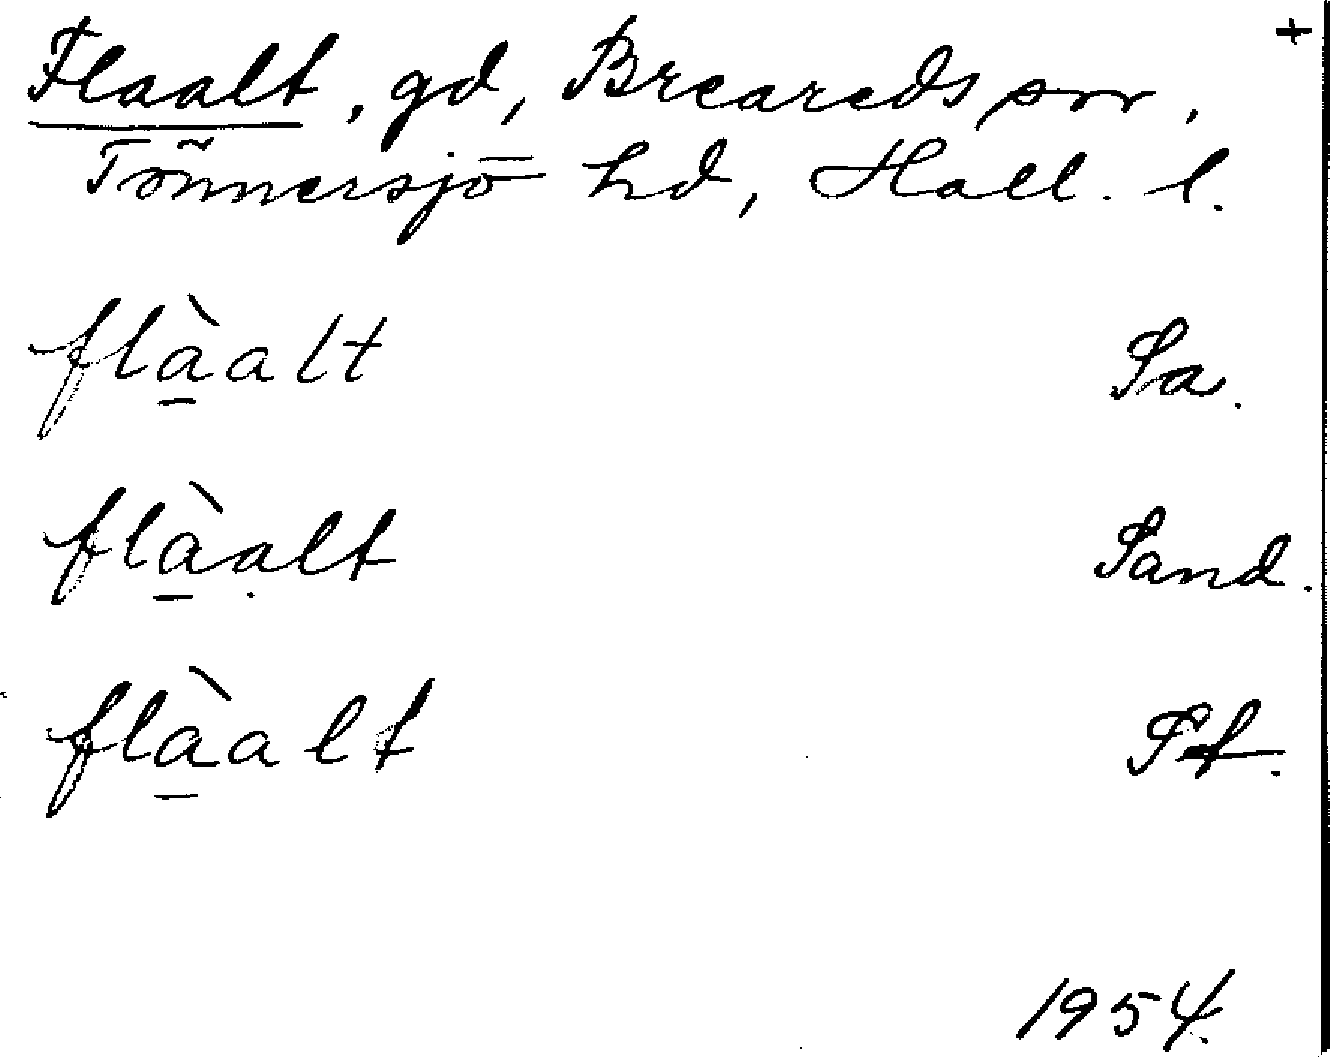 +
Flaalt, gd, Breareds snr,
Tönnersjö hd, Hall. l.
flà̱alt Sa.
flà̱ạlt Sand.
flà̱alt Pf.
1954.